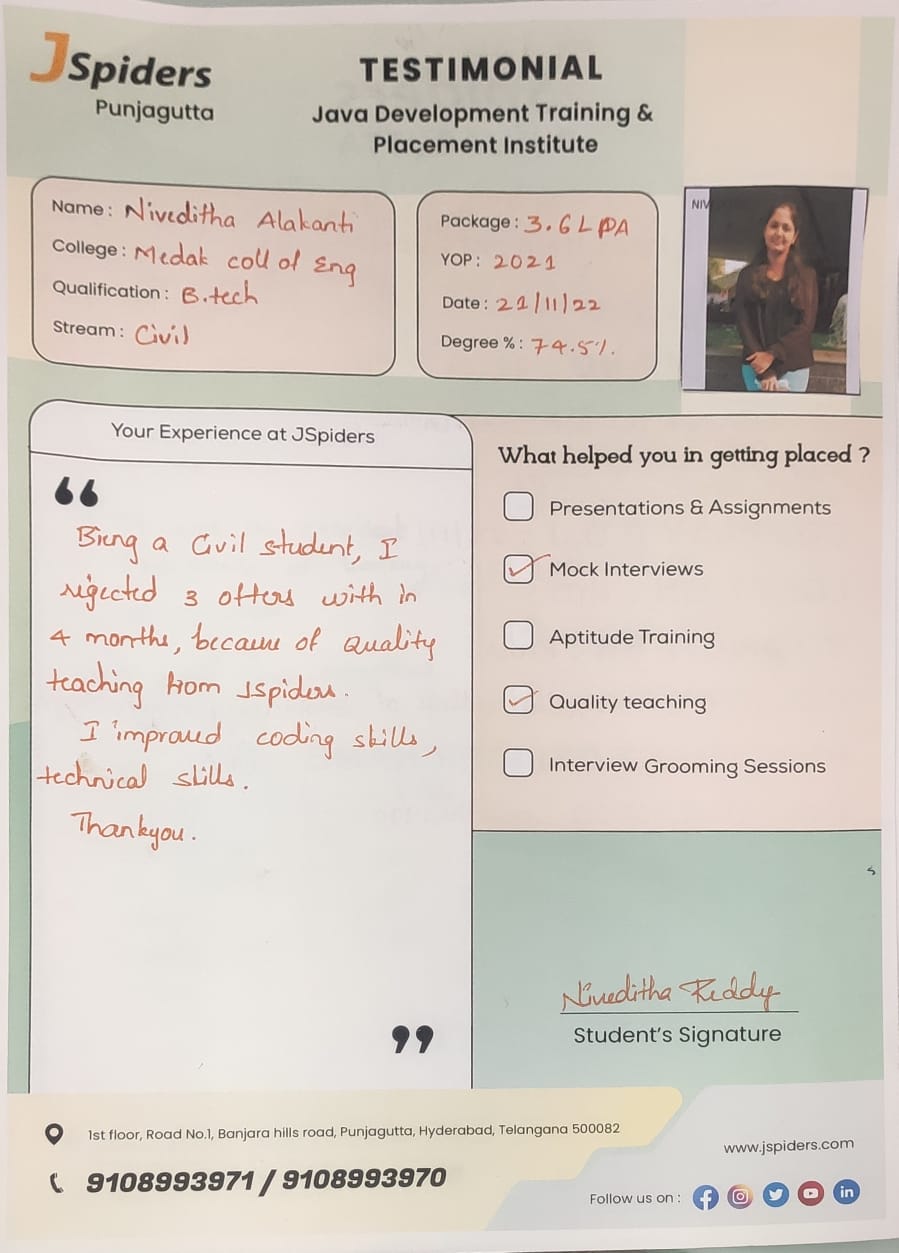 JSpiders
Punjagutta
TESTIMONIAL
Java Development Training &
Placement Institute
Name : Niveditha Alakanti
College : Medak coll of Eng
Qualification : B.tech
Stream : Civil
Package : 3.6 LPA
YOP : 2021
Date : 21/11/22
Degree % : 74.5%.
NIV
Your Experience at JSpiders
“
Bieng a Civil student, I
rejected 3 offers with in
4 months, because of Quality
teaching from Jspiders.
I improved coding skills,
technical skills.
Thankyou.
”
What helped you in getting placed ?
Presentations & Assignments
Mock Interviews
Aptitude Training
Quality teaching
Interview Grooming Sessions
Niveditha Reddy
Student's Signature
1st floor, Road No.1, Banjara hills road, Punjagutta, Hyderabad, Telangana 500082
9108993971 / 9108993970
www.jspiders.com
Follow us on :